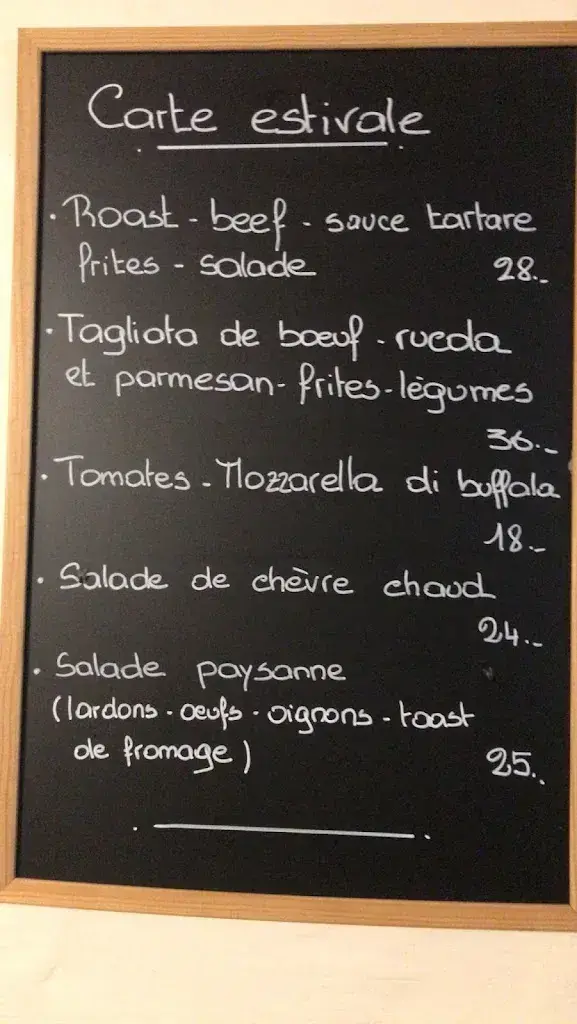 Carte estivale
• Roast - beef - sauce tartare
frites - salade 28.-
• Tagliata de bœuf - rueda
et parmesan - frites - légumes
36.-
• Tomates - Mozzarella di buffala
18.-
• Salade de chèvre chaud
24.-
• Salade paysanne
(lardons - oeufs - oignons - toast
de fromage) 25.-